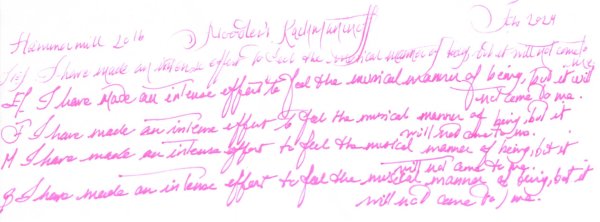 Hammermill 20 lb Noodler's Rachmaninoff Jan 2024
I have made an intense effort to feel the musical manner of being, but it will not come to me.
EF I have made an intense effort to feel the musical manner of being, but it will
not come to me.
F I have made an intense effort to feel the musical manner of being, but it
will not come to me.
M I have made an intense effort to feel the musical manner of being, but it
will not come to me.
B I have made an intense effort to feel the musical manner of being, but it
will not come to me.